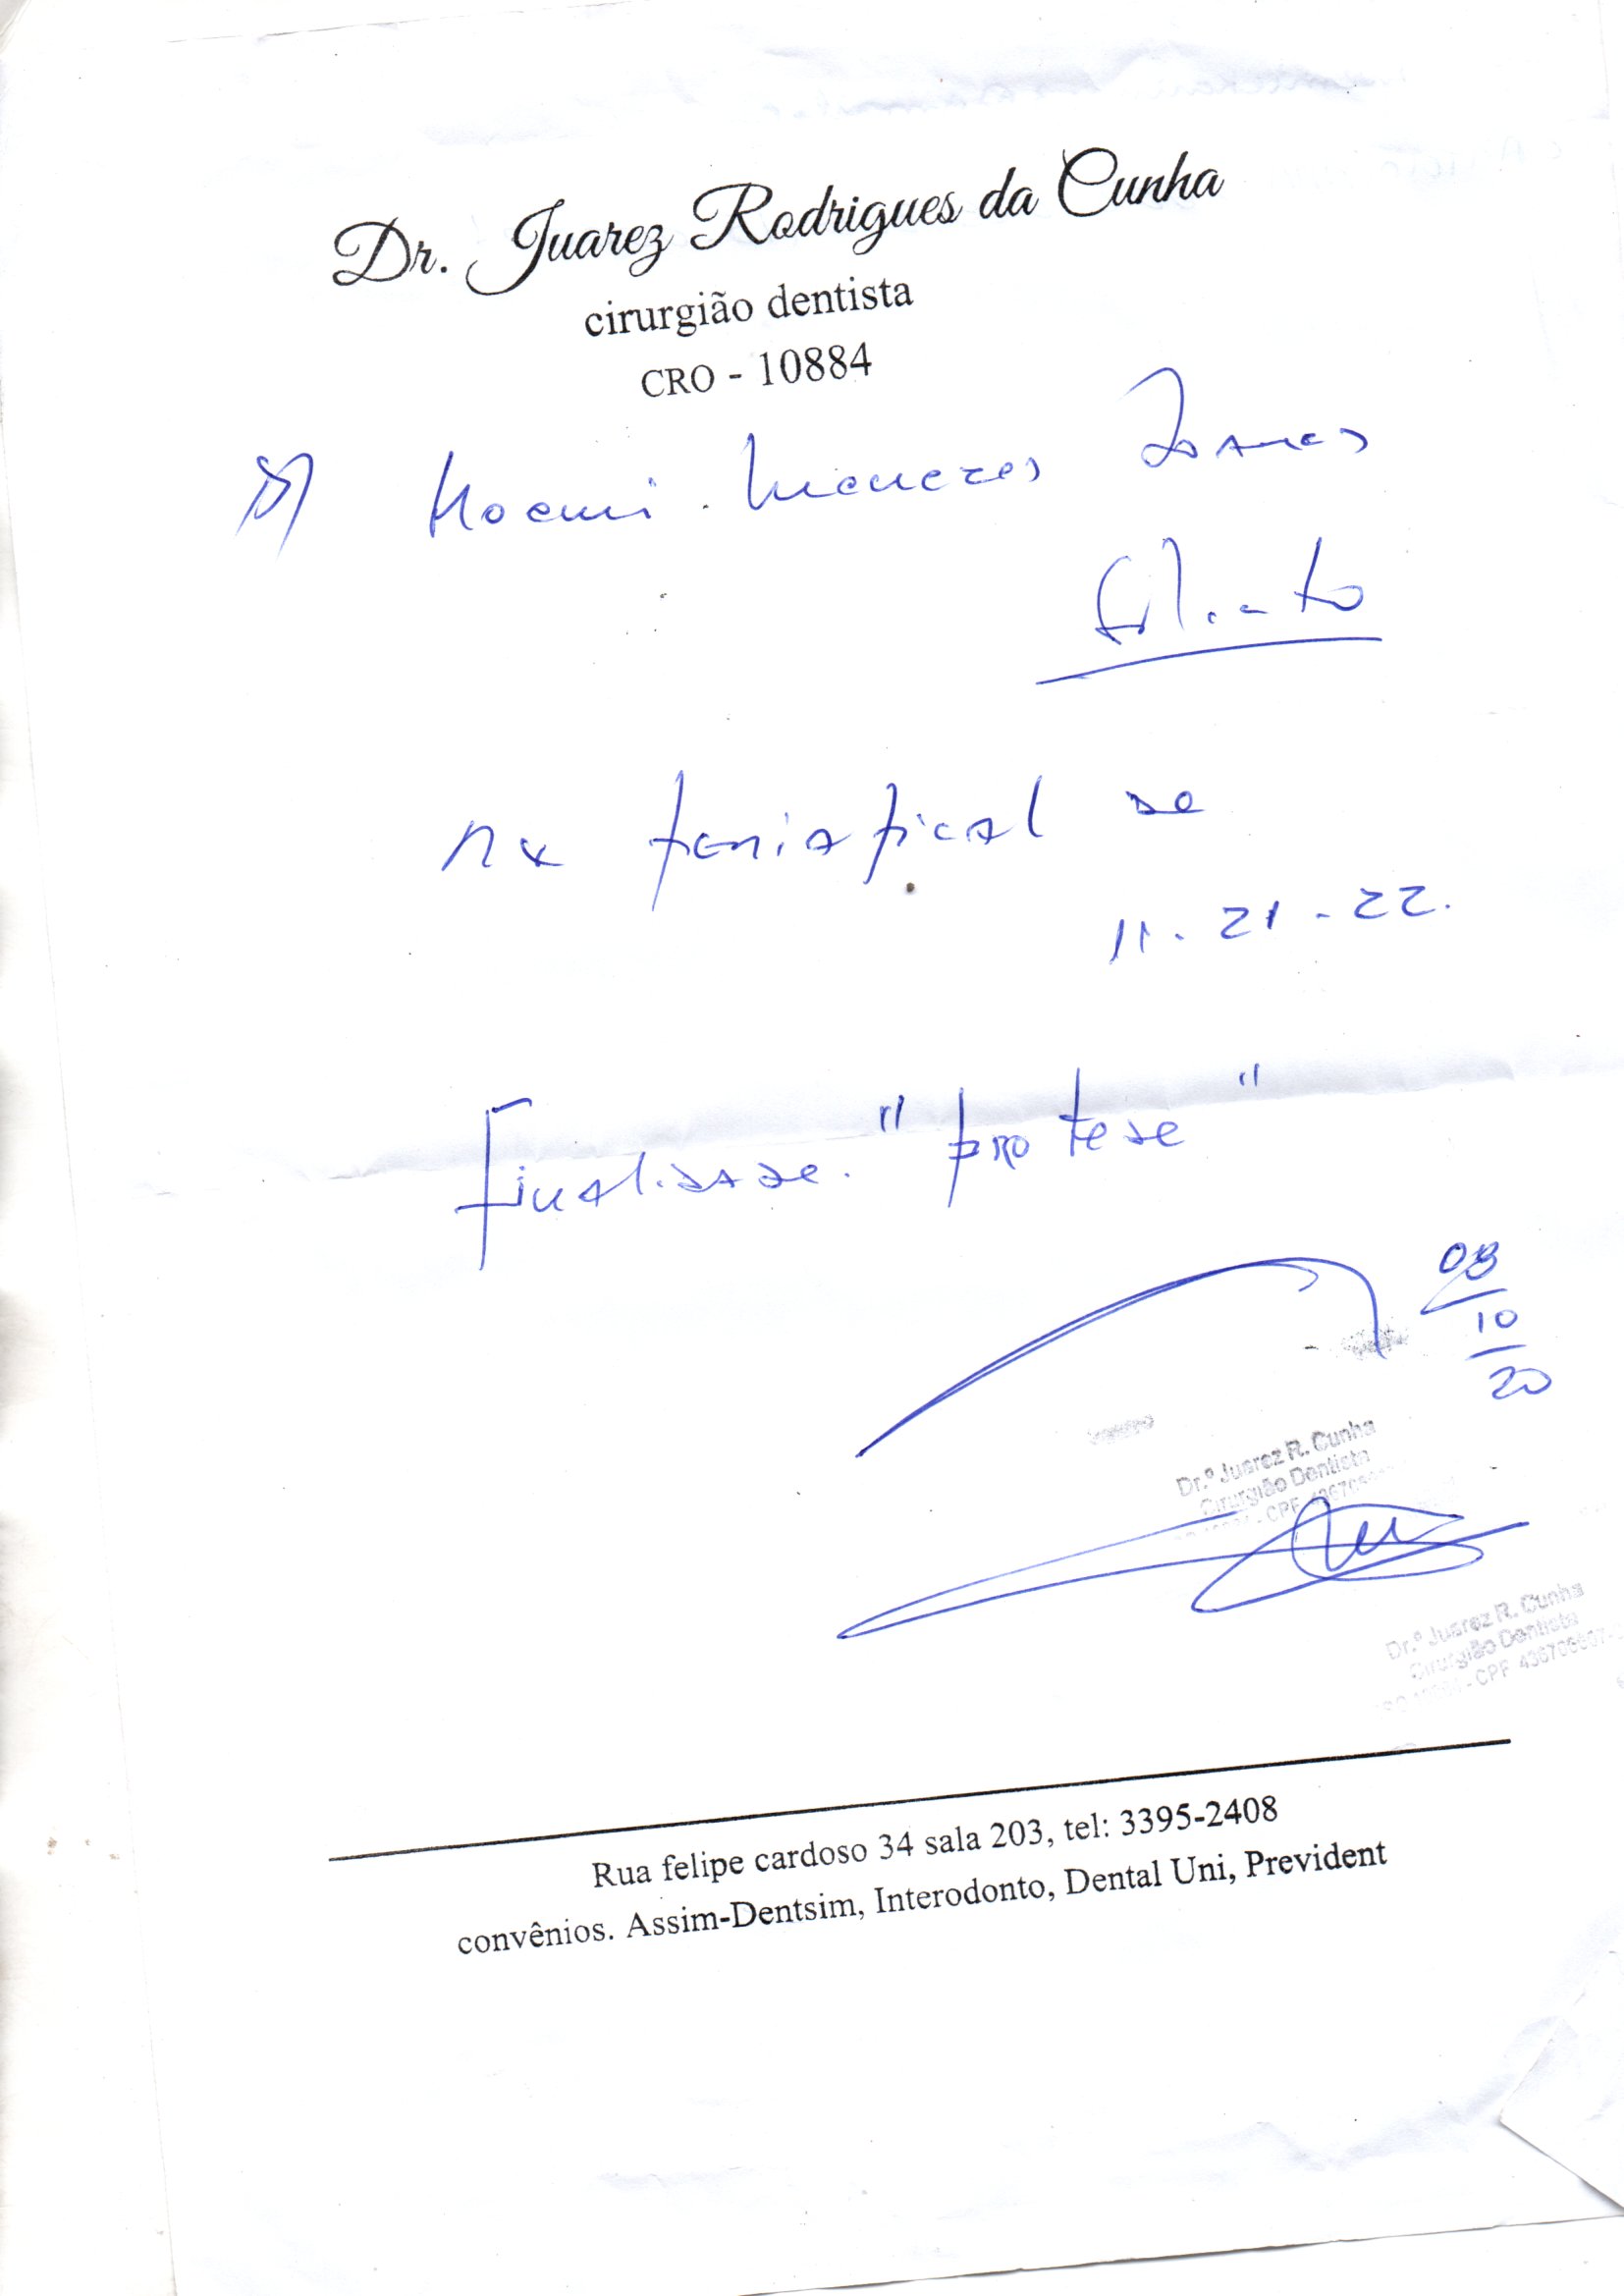 Dr. Juarez Rodrigues da Cunha
cirurgião dentista
CRO - 10884
Noemi Menezes Soares
Solicito
RX periapical de
11 - 21 - 22.
Finalidade. "protese"
08
10
20
Dr.º Juarez R. Cunha
Cirurgião Dentista
Dr.º Juarez R. Cunha
Cirurgião Dentista
- CPF
Rua felipe cardoso 34 sala 203, tel: 3395-2408
convênios. Assim-Dentsim, Interodonto, Dental Uni, Prevident